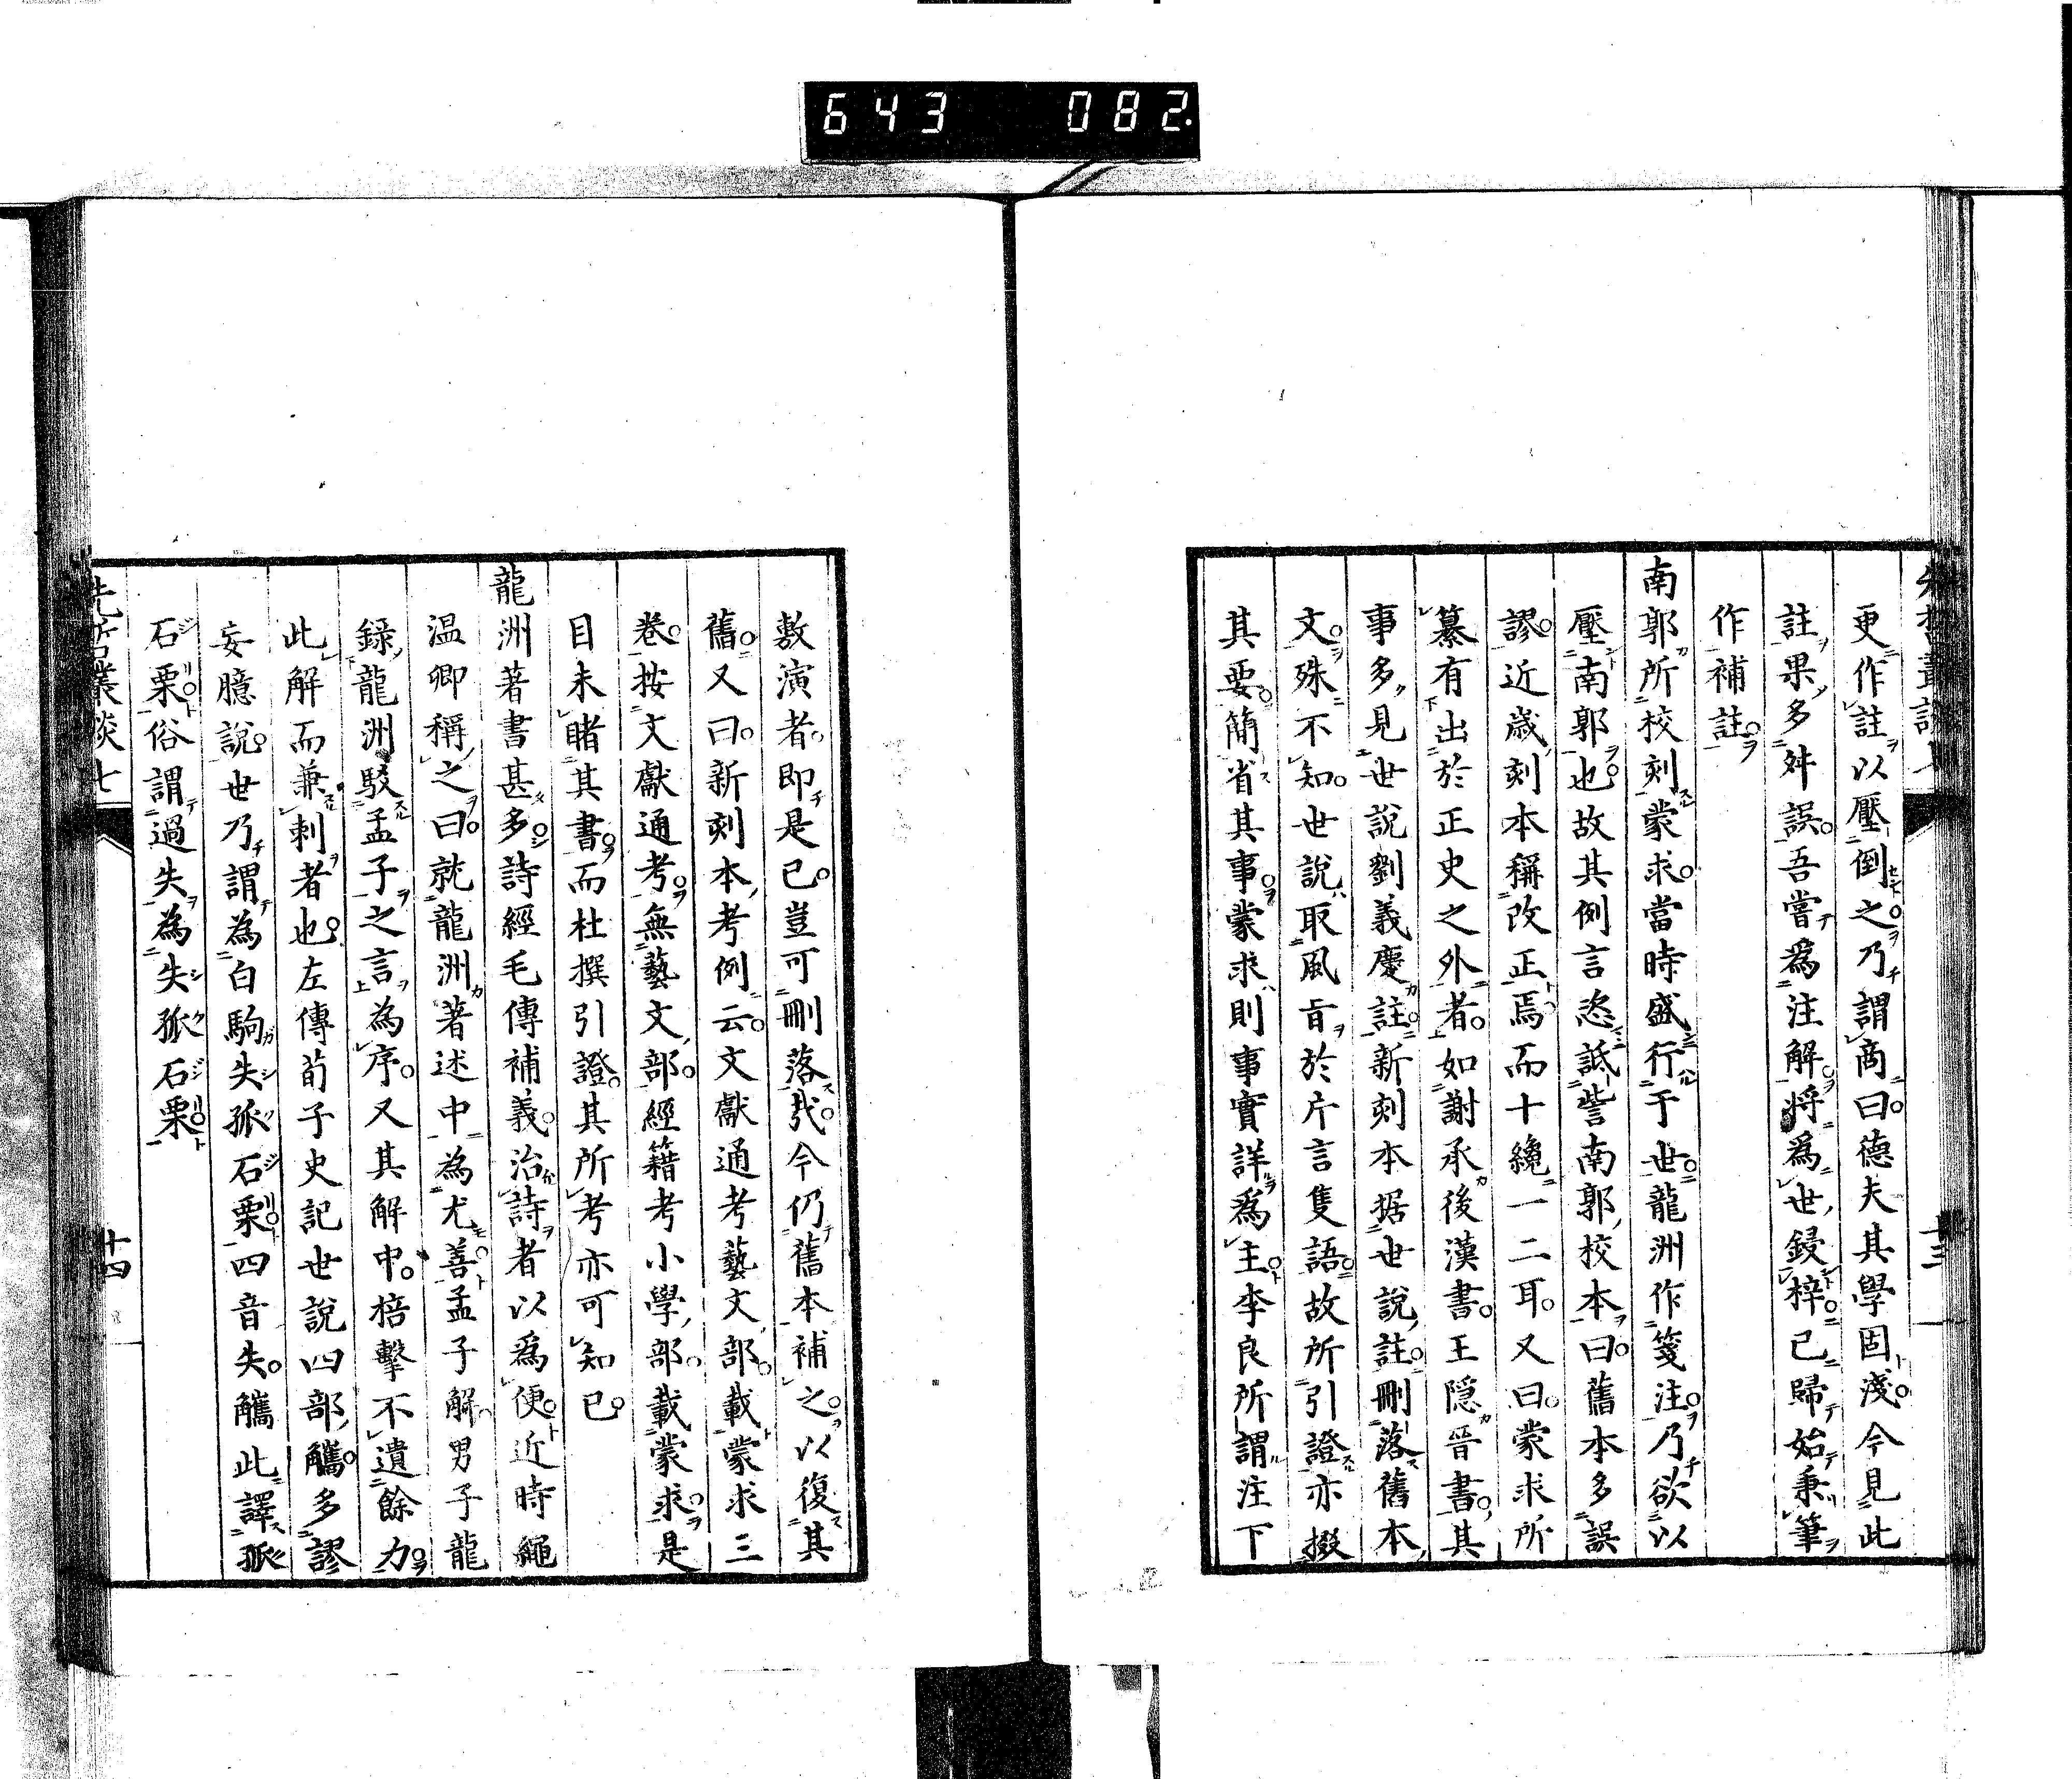 643 082.
更作註以壓倒之乃謂商曰德夫其學固淺今見此
註果多舛誤吾嘗爲注解將爲世鋟梓已歸始秉筆
作補註
南郭所校刻蒙求當時盛行于世龍洲作箋注乃欲以
壓南郭也故其例言恣詆訾南郭校本曰舊本多誤
謬近歳刻本稱改正焉而十纔一二耳又曰蒙求所
纂有出於正史之外者如謝承後漢書王隱晉書其
事多見世說劉義慶註新刻本据世說註刪落舊本
文殊不知世說取風旨於片言隻語故所引證亦掇
其要簡省其事蒙求則事實詳爲主李良所謂注下
敷演者即是已豈可刪落哉今仍舊本補之以復其
舊又曰新刻本考例云文獻通考藝文部載蒙求三
卷按文獻通考無藝文部經籍考小學部載蒙求是
目未睹其書而杜撰引證其所考亦可知已
龍洲著書甚多詩經毛傳補義治詩者以爲便近時繩
温卿稱之曰就龍洲著述中為尤善孟子解男子龍
錄龍洲駁孟子之言為序又其解中掊擊不遺餘力
此解而兼刺者也左傳荀子史記世說四部觿多謬
妄臆說世乃謂為白駒失孤石栗四音失觿此譯孤
石栗俗謂過失為失孤石栗
先哲叢談 七
十四